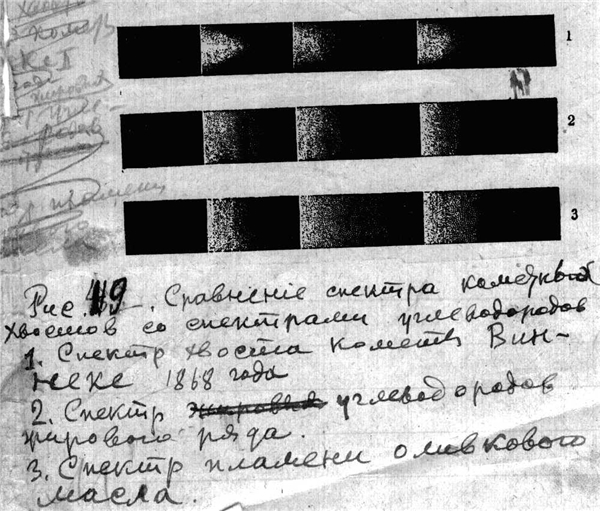 1
2
3
Рис. 119. Сравнение спектра кометных
хвостов со спектрами углеводородов
1. Спектр хвоста кометы Вин-
неке 1868 года
2. Спектр углеводородов
жирового ряда.
3. Спектр пламени оливкового
масла.